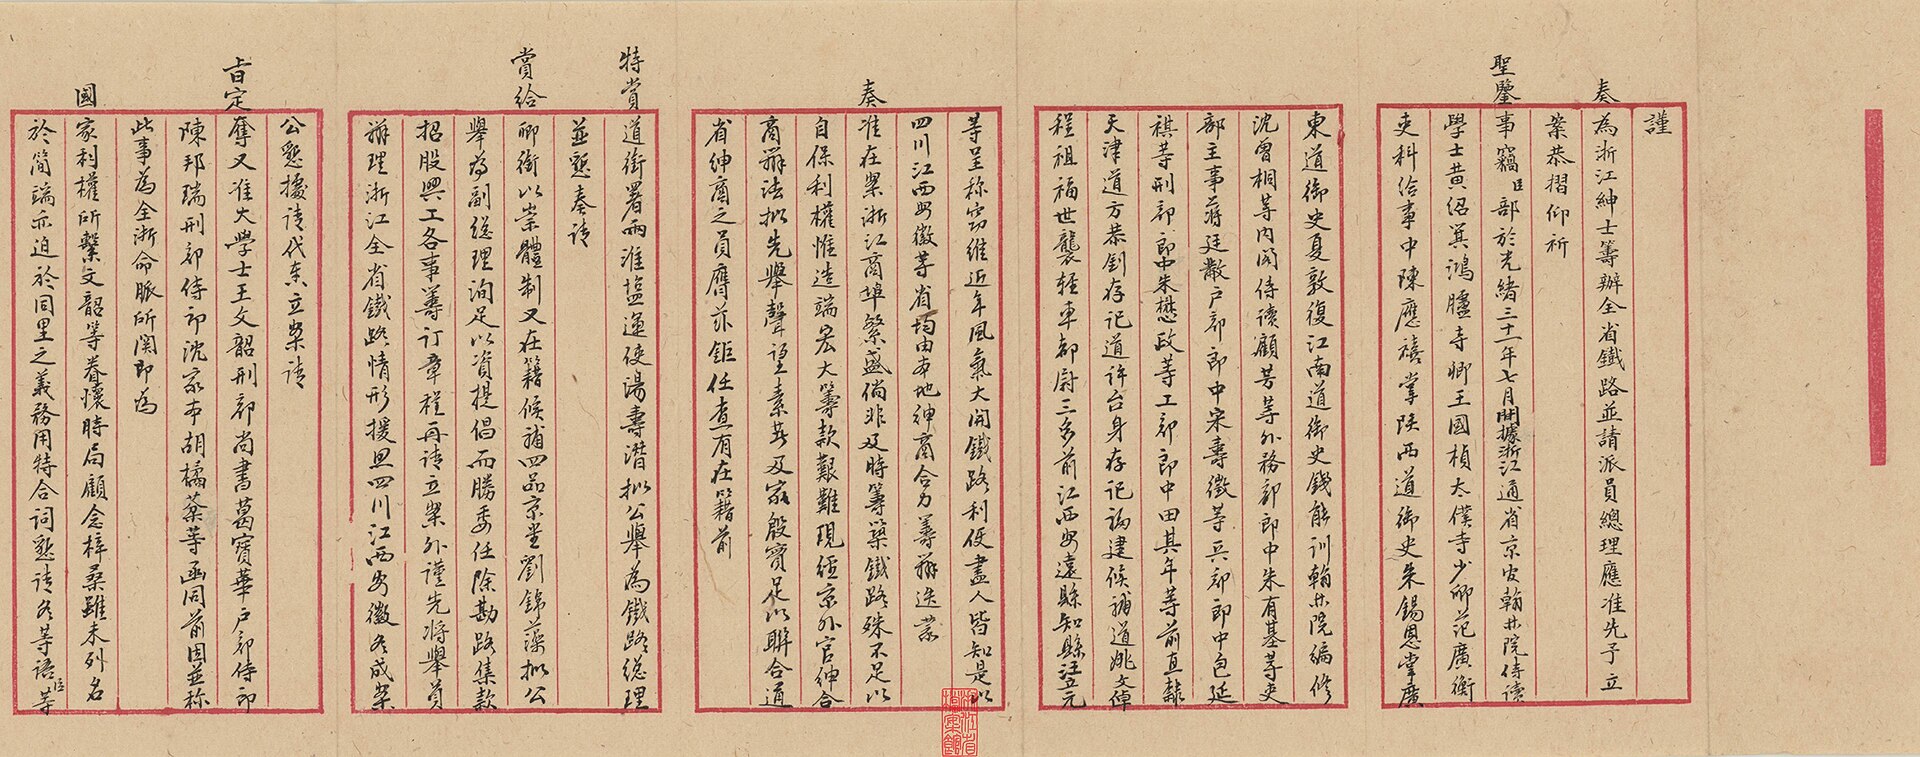 謹
奏為浙江紳士籌辦全省鐵路並請派員總理應准先予立
案恭摺仰祈
聖鑒事竊臣部於光緒三十一年七月間據浙江通省京官翰林院侍讀
學士黃紹箕鴻臚寺卿王國楨太僕寺少卿范廣衡
吏科給事中陳應禧掌陝西道御史朱錫恩掌廣
東道御史夏敦復江南道御史錢能訓翰林院編修
沈曾桐等內閣侍讀顧芳等外務部郎中朱有基等吏
部主事蔣廷黻戶部郎中宋壽徵等兵部郎中包延
祺等刑部郎中朱懋政等工部郎中田其年等前直隸
天津道方恭釗存記道許台身存記福建候補道姚文倬
程祖福世襲輕車都尉三多前江西安遠縣知縣汪元
等呈称窃維近年風氣大開鐵路利便盡人皆知是以
四川江西安徽等省均由本地紳商合力籌辦迭蒙
奏准在案浙江商埠繁盛倘非及時籌築鐵路殊不足以
自保利權惟造端宏大籌款艱難現經京外官紳合
商辦法擬先舉聲望素孚及家殷實足以聯合通
省紳商之員膺茲鉅任查有在籍前
道銜署兩淮鹽運使湯壽潛擬公舉為鐵路總理
並懇奏請
特賞
賞給卿銜以崇體制又在籍候補四品京堂劉錦藻擬公
舉為副總理洵足以資提倡而勝委任除勘路集款
招股興工各事籌訂章程再請立案外謹先將舉員
辦理浙江全省鐵路情形援照四川江西安徽各成案
公懇據請代奏立案請
旨定奪又准大學士王文韶刑部尚書葛寶華戶部侍郎
陳邦瑞刑部侍郎沈家本胡燏棻等函同前因並称
此事為全浙命脈所関即為
國家利權所繫文韶等眷懷時局顧念梓桑雖未列名
於簡端亦迫於同里之義務用特合詞懇請各等語臣等